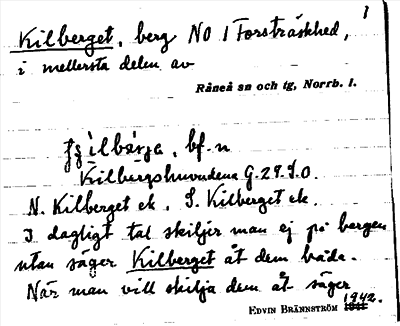 1
Kilberget, berg NO 1 Forsträskhed,
i mellersta delen av
Råneå sn och tg, Norrb. l.
bf. n
Kilbergshuvudena G.29.S.O.
N. Kilberget ek. S. Kilberget ek.
I dagligt tal skiljer man ej på bergen
utan säger Kilberget åt dem båda.
När man vill skilja dem åt säger
EDVIN BRÄNNSTRÖM 1942.